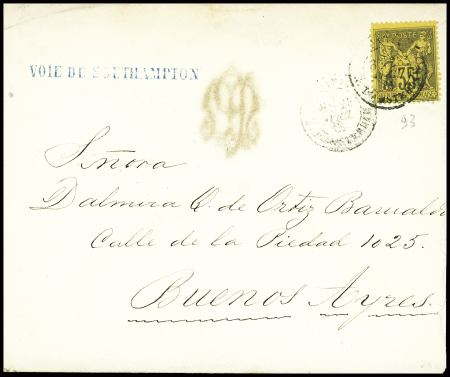 VOIE DE SOUTHAMPTON
POSTE
35
93
Señora
Dalmira Q. de Ortiz Basualdo
Calle de la Piedad 1025.
Buenos Ayres.